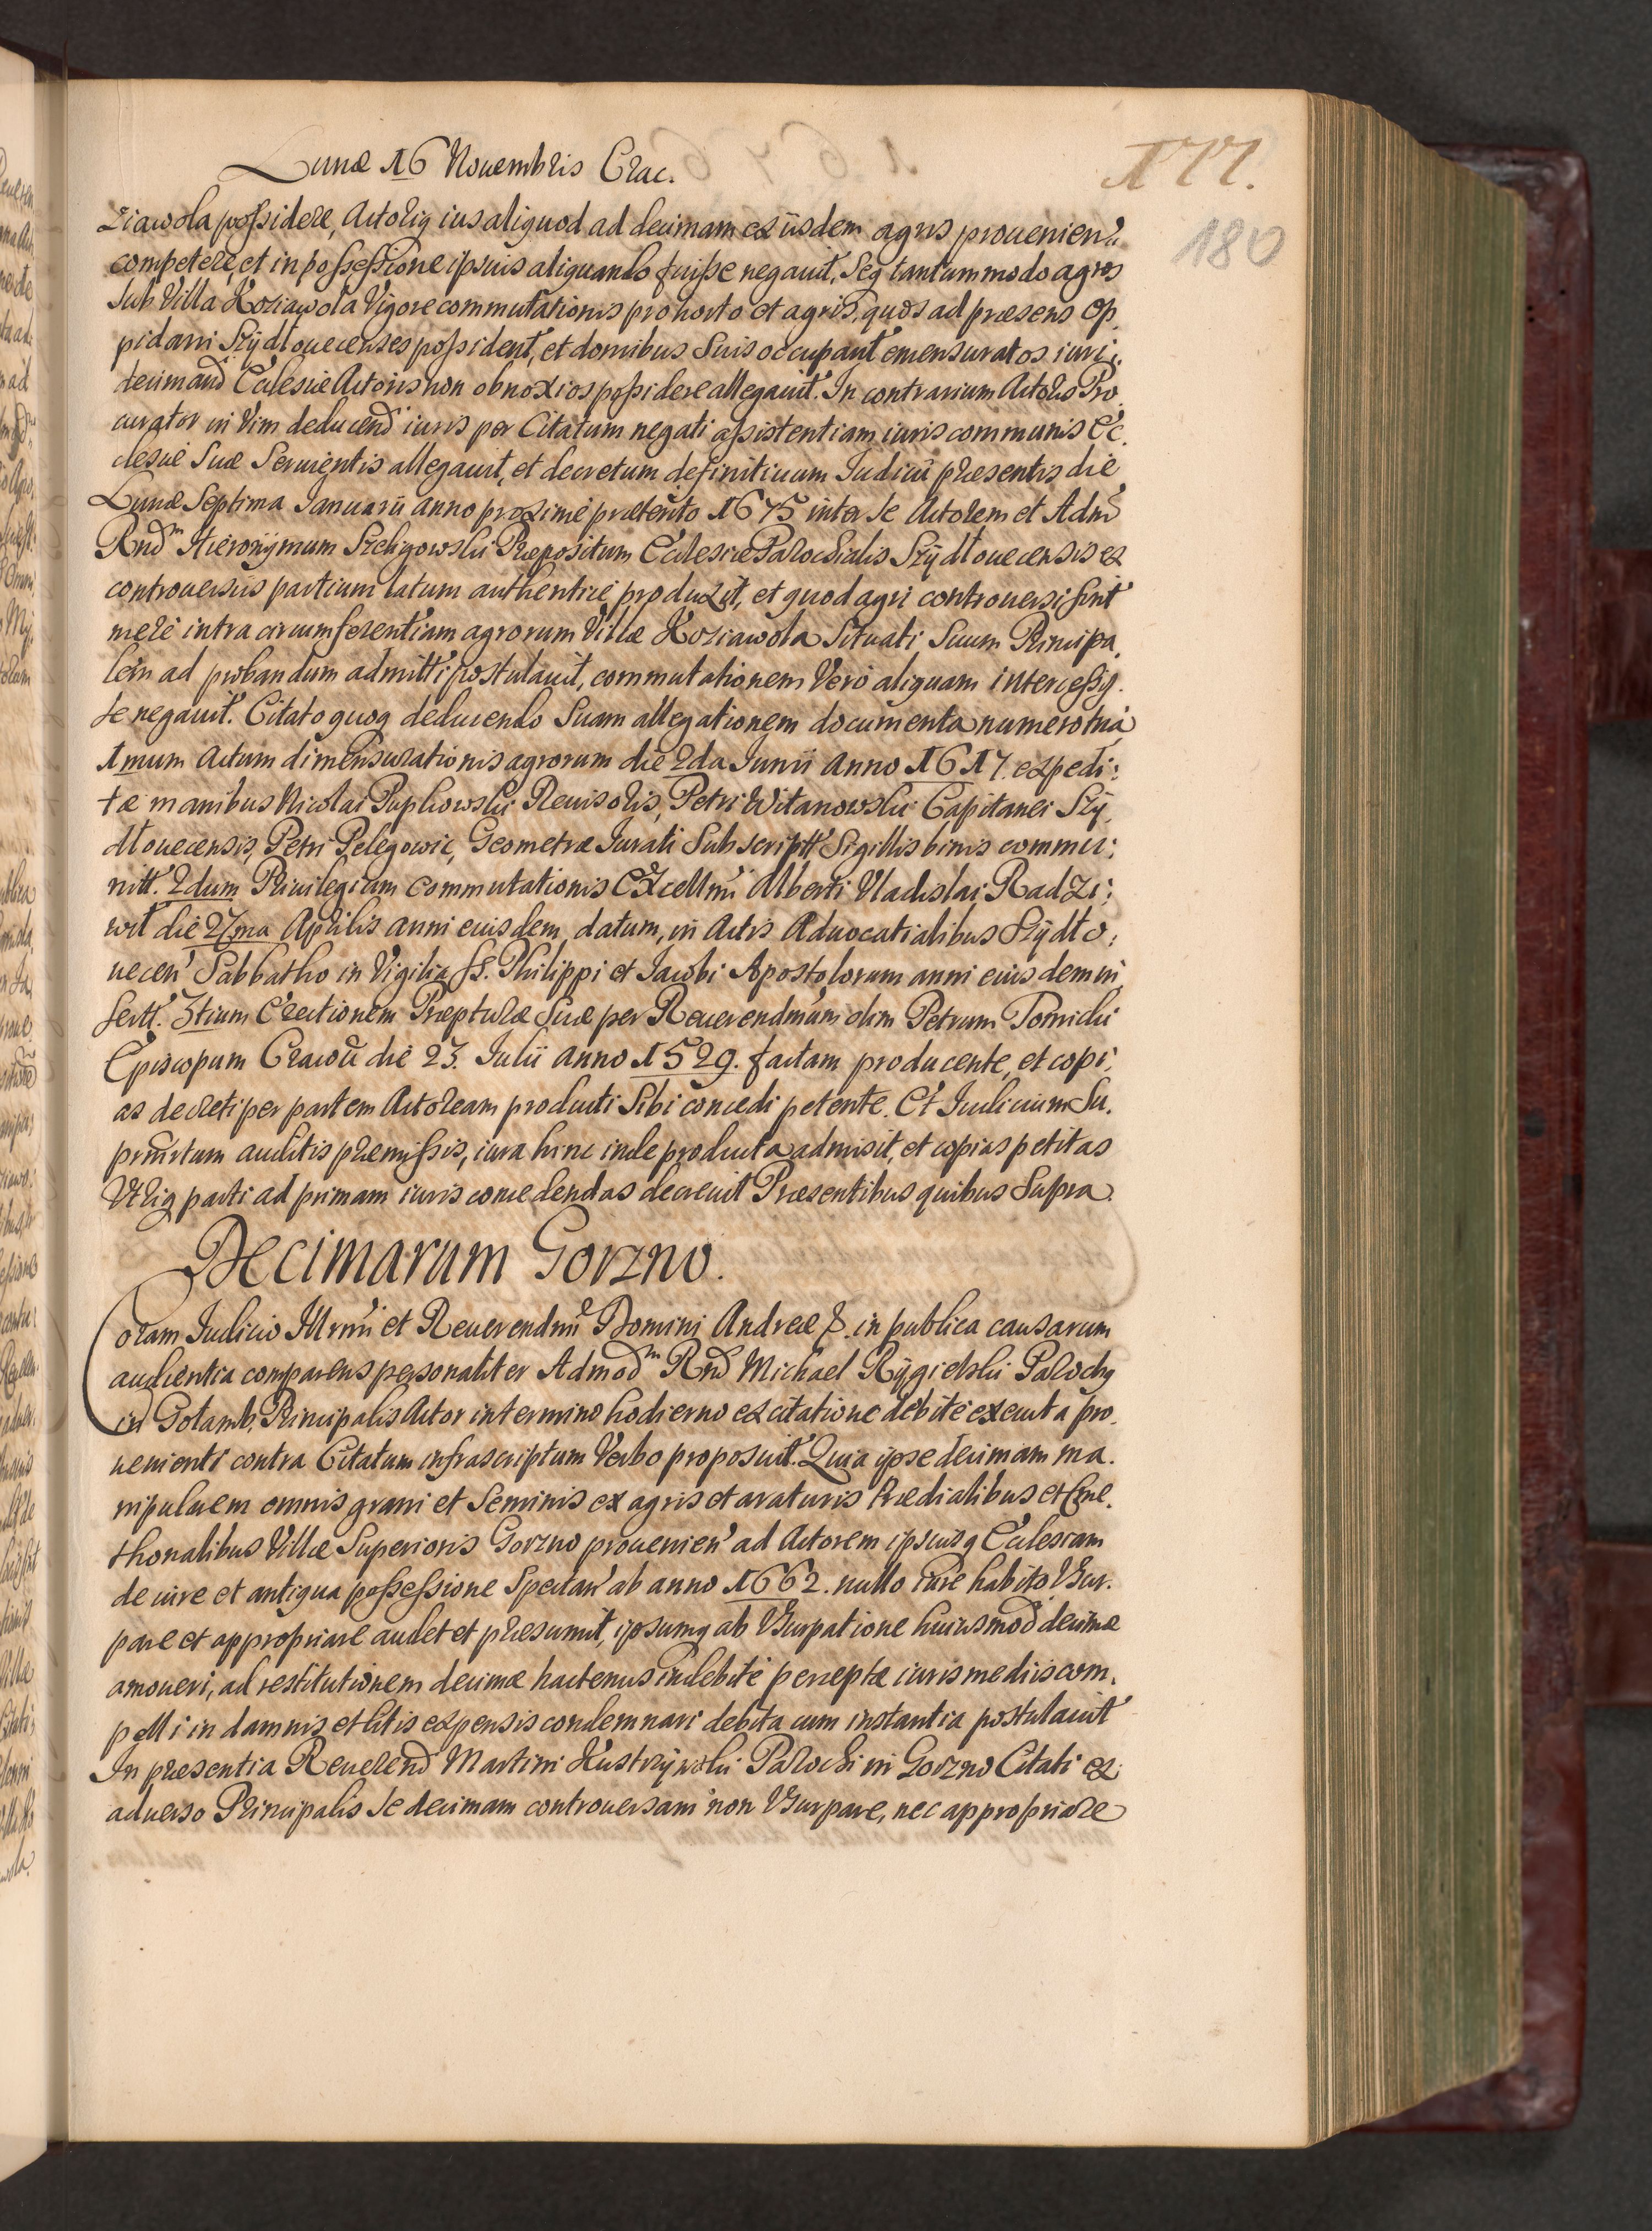 Lunæ 16 Nouembris Crac.
177.
180
ziawola possidere, Actoriq ius aliquod ad decimam ex iisdem agris prouenien̄
competere, et in possessione ipsius aliquando fuisse negauit, Seq tantummodo agros
sub Villa Koziawola Vigore commutationis pro horto et agris, quos ad præsens Op,
pidani Szÿdłouecenses possident, et domibus suis occupant emensuratos iuri,
decimand Ecclesiæ Actoris non obnoxios possidere allegauit. In contrarium Actoris Pro,
curator in Vim deducend iuris per Citatum negati assistentiam iuris communis Ec,
clesiæ Suæ Seruientis allegauit, et decretum definitiuum Iudicii præsentis die
Lunæ Septima Ianuarii anno proxime præterito 1675 inter se Actorem et Adm
Rndm Hieronÿmum Szeligowski Præpositum Ecclesiæ Parochialis Szÿdłouecensis ex
controuersiis partium latum authentice produxit, et quod agri controuersi sint
mere intra circumferentiam agrorum Villæ Koziawola Situati, Suum Principa,
lem ad probandum admitti postulauit, commutationem Vero aliquam intercessis,
se negauit. Citato quoq deducendo Suam allegationem documenta numero tria
1mum Actum dimensurationis agrorum die 2da Iunii Anno 1617. expedi:
tæ manibus Nicolai Pupkowski Reuisoris, Petri Witanowski Capitanei Szÿ,
dłouecensis, Petri Pelegowic, Geometræ Iurati Subscriptt Sigillis binis commu:
nitt. 2dum Priuilegium Commutationis Excellmi Alberti Vladislai Radzi:
wił die 27ma Aprilis anni eiusdem datum, in Actis Aduocatialibus Szÿdło:
uecen Sabbatho in Vigilia SS. Philippi et Iacobi Apostolorum anni eiusdem in
sertt. 3tium Erectionem Præpturæ Suæ per Reuerendmum olim Petrum Tomicki
Episcopum Cracou die 23. Iulii anno 1529. factam producente, et copi,
as decreti per partem Actoream producti Sibi concedi petente. Et Iudicium Su,
prmrtum auditis præmissis, iura hinc inde producta admisit, et copias petitas
Vtriq parti ad primam iuris concedendas decreuit Præsentibus quibus Supra.
Decimarum Gorzno.
Coram Iudicio Illrmi et Reuerendmi Domini Andreæ &. in publica causarum
audientia comparens personaliter Admodm Rnd Michael Rÿgielski Parochq
in Gotamb. Principalis Actor in termino hodierno ex citatione debite executa pro,
uenienti contra Citatum infrascriptum Verbo proposuit. Quia ipse decimam ma,
nipularem omnis grani et Seminis ex agris et araturis Prædialibus et Cme,
thonalibus Villæ Superioris Gorzno prouenien ad Actorem ipsiusq Ecclesiam
de iure et antiqua possessione Spectan ab anno 1662. nullo iure habito Vsur,
pare et appropriare audet et præsumit, ipsumq ab Vsurpatione huiusmod decimæ
amoueri, ad restitutionem decimæ hactenus indebite perceptæ iuris mediis com,
pelli in damnis et litis expensis condemnari debita cum instantia postulauit
In præsentia Reuerend Martini Kustrzÿwski Parochi in Gorzno Citati ex
aduerso Principalis se decimam controuersam non Vsurpare, nec appropriare